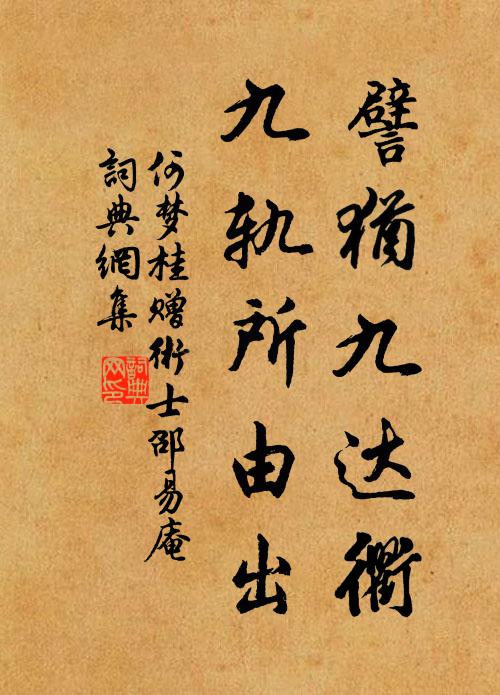 譬犹九达衢
九轨所由出
何梦桂赠術士邵易庵
詞典網集
詞典网印